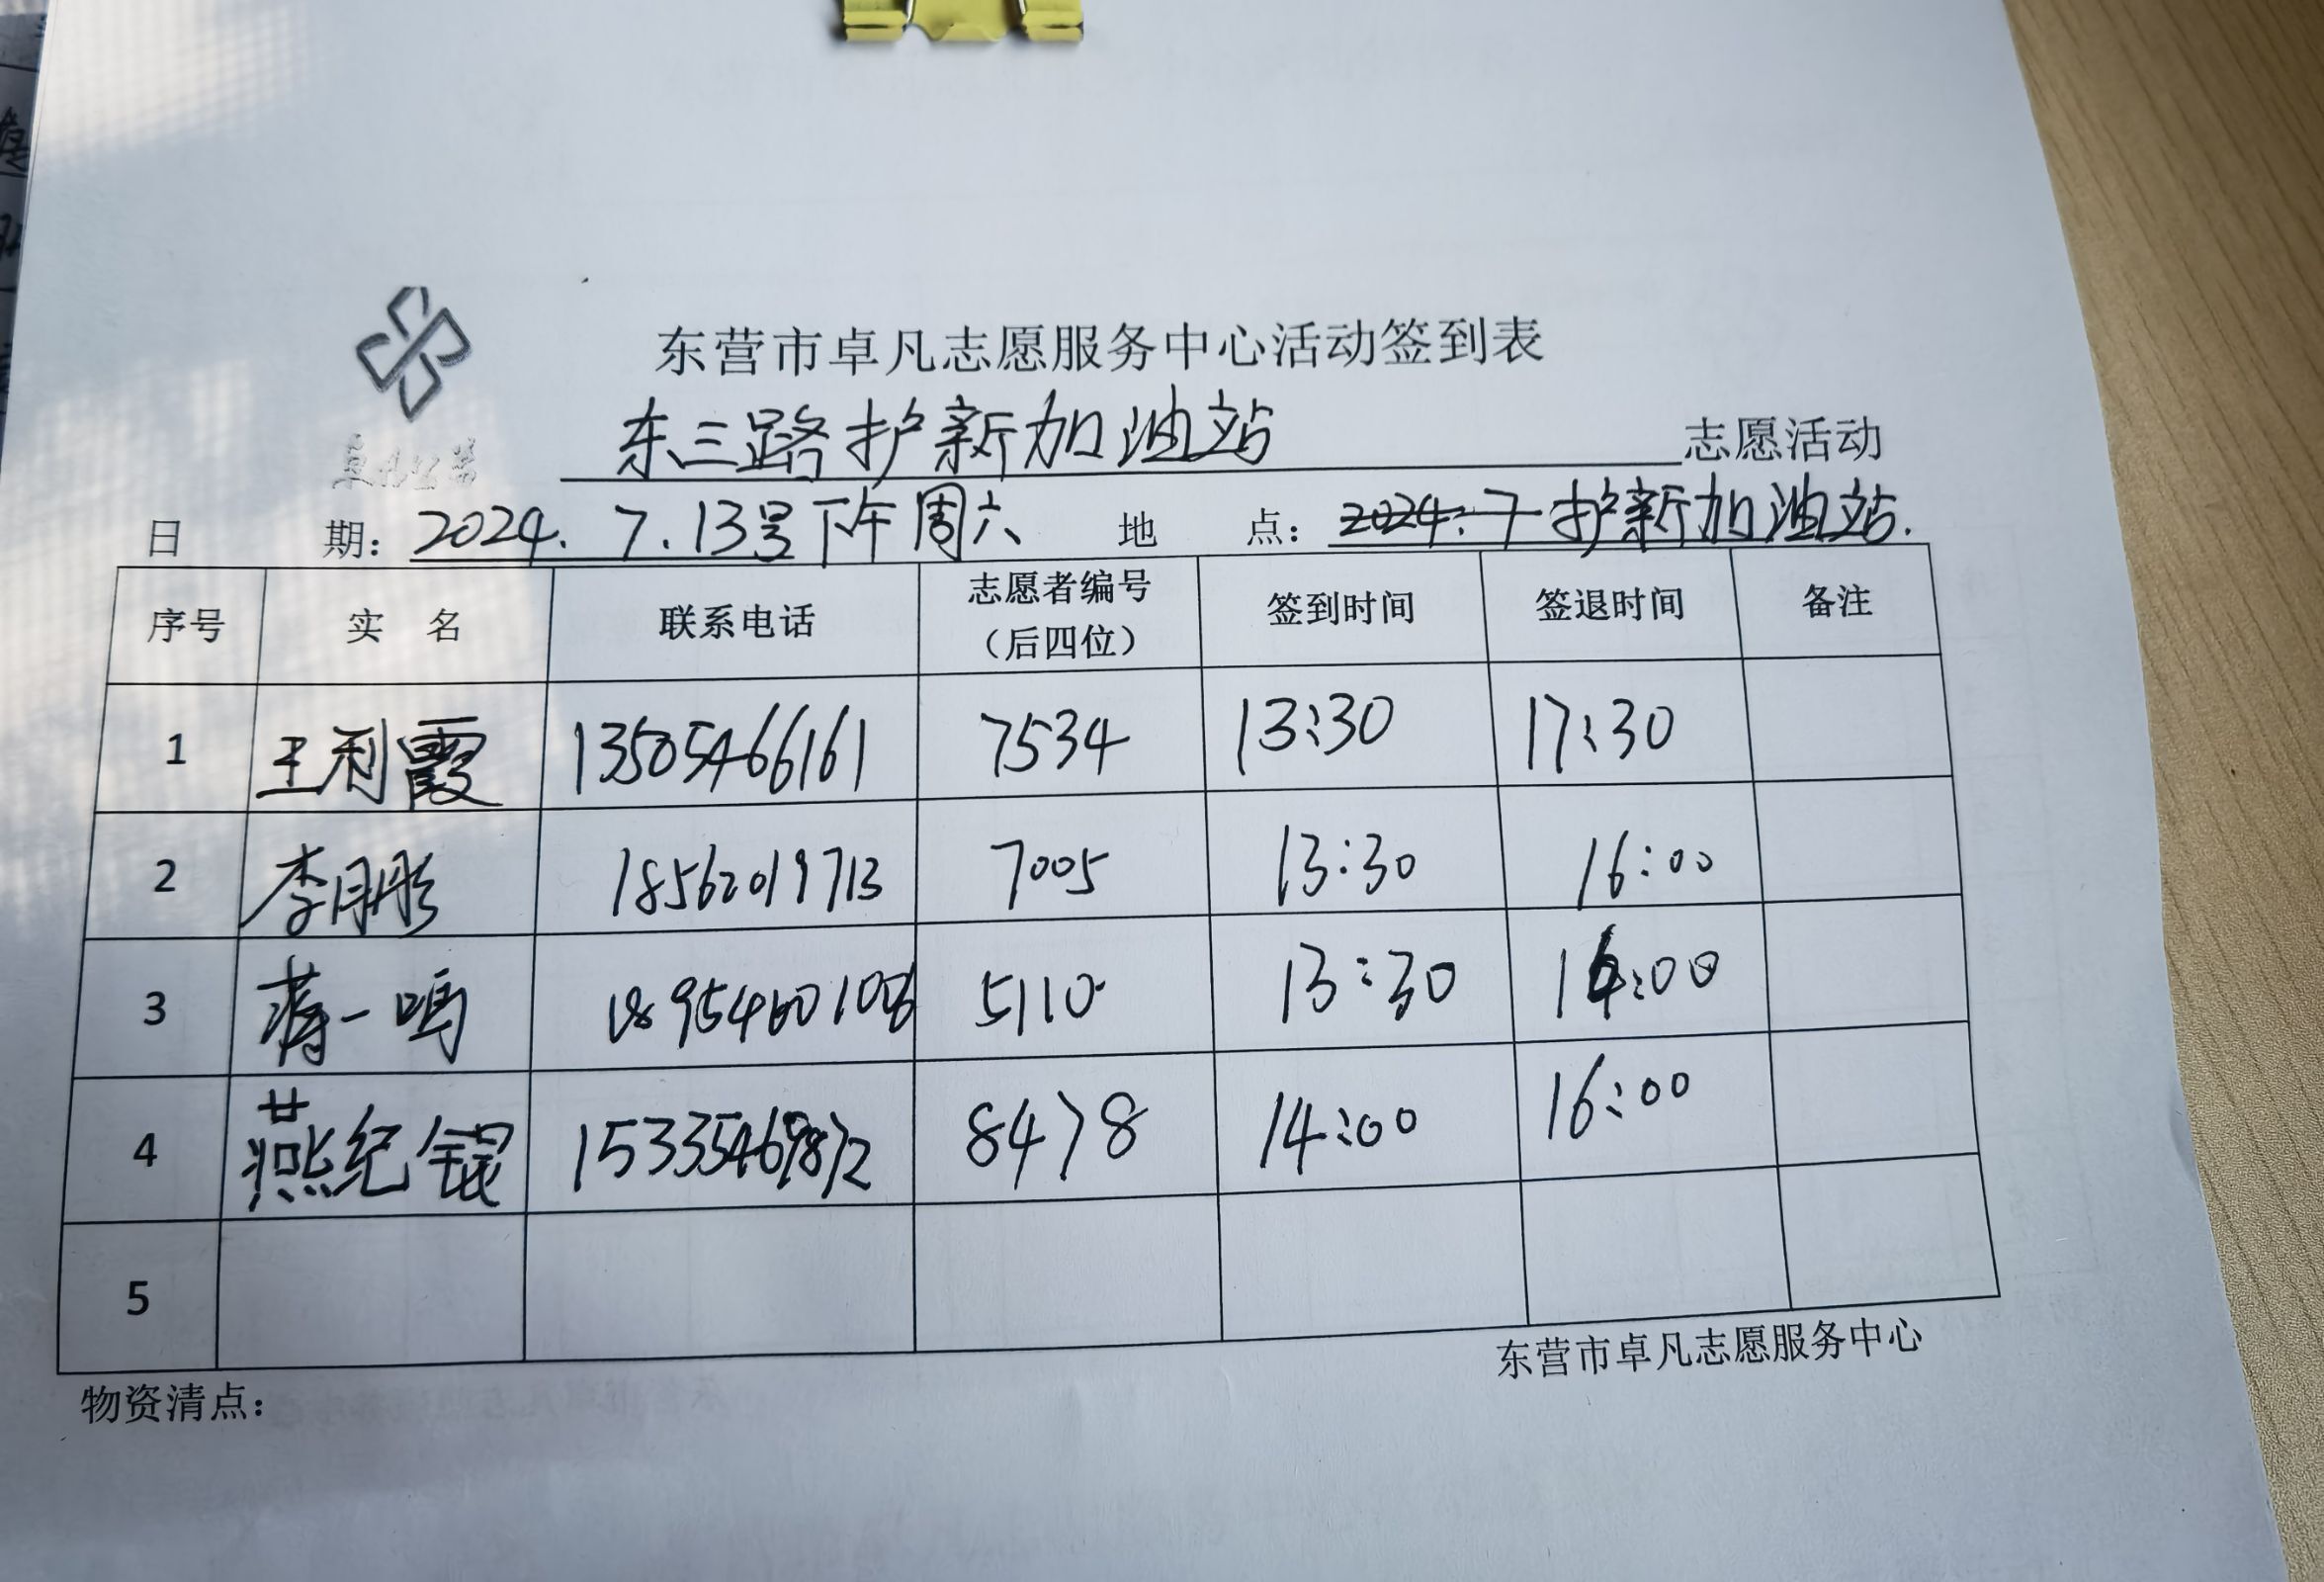 东营市卓凡志愿服务中心活动签到表
东三路护新加油站 志愿活动
日 期：2024.7.13号下午周六 地 点：2024.7 护新加油站.
序号 实 名 联系电话 志愿者编号（后四位） 签到时间 签退时间 备注
1 王利霞 13505466161 7534 13:30 17:30
2 李月彤 18562019713 7005 13:30 16:00
3 蒋一鸣 5110 13:30 16:00
4 燕纪锟 8478 14:00 16:00
5
东营市卓凡志愿服务中心
物资清点：